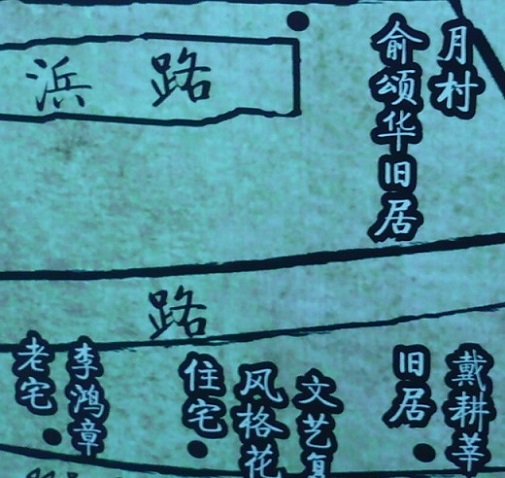 月村
俞颂华旧居
浜路
路
戴耕莘
旧居
文艺复
风格花
住宅
李鸿章
老宅